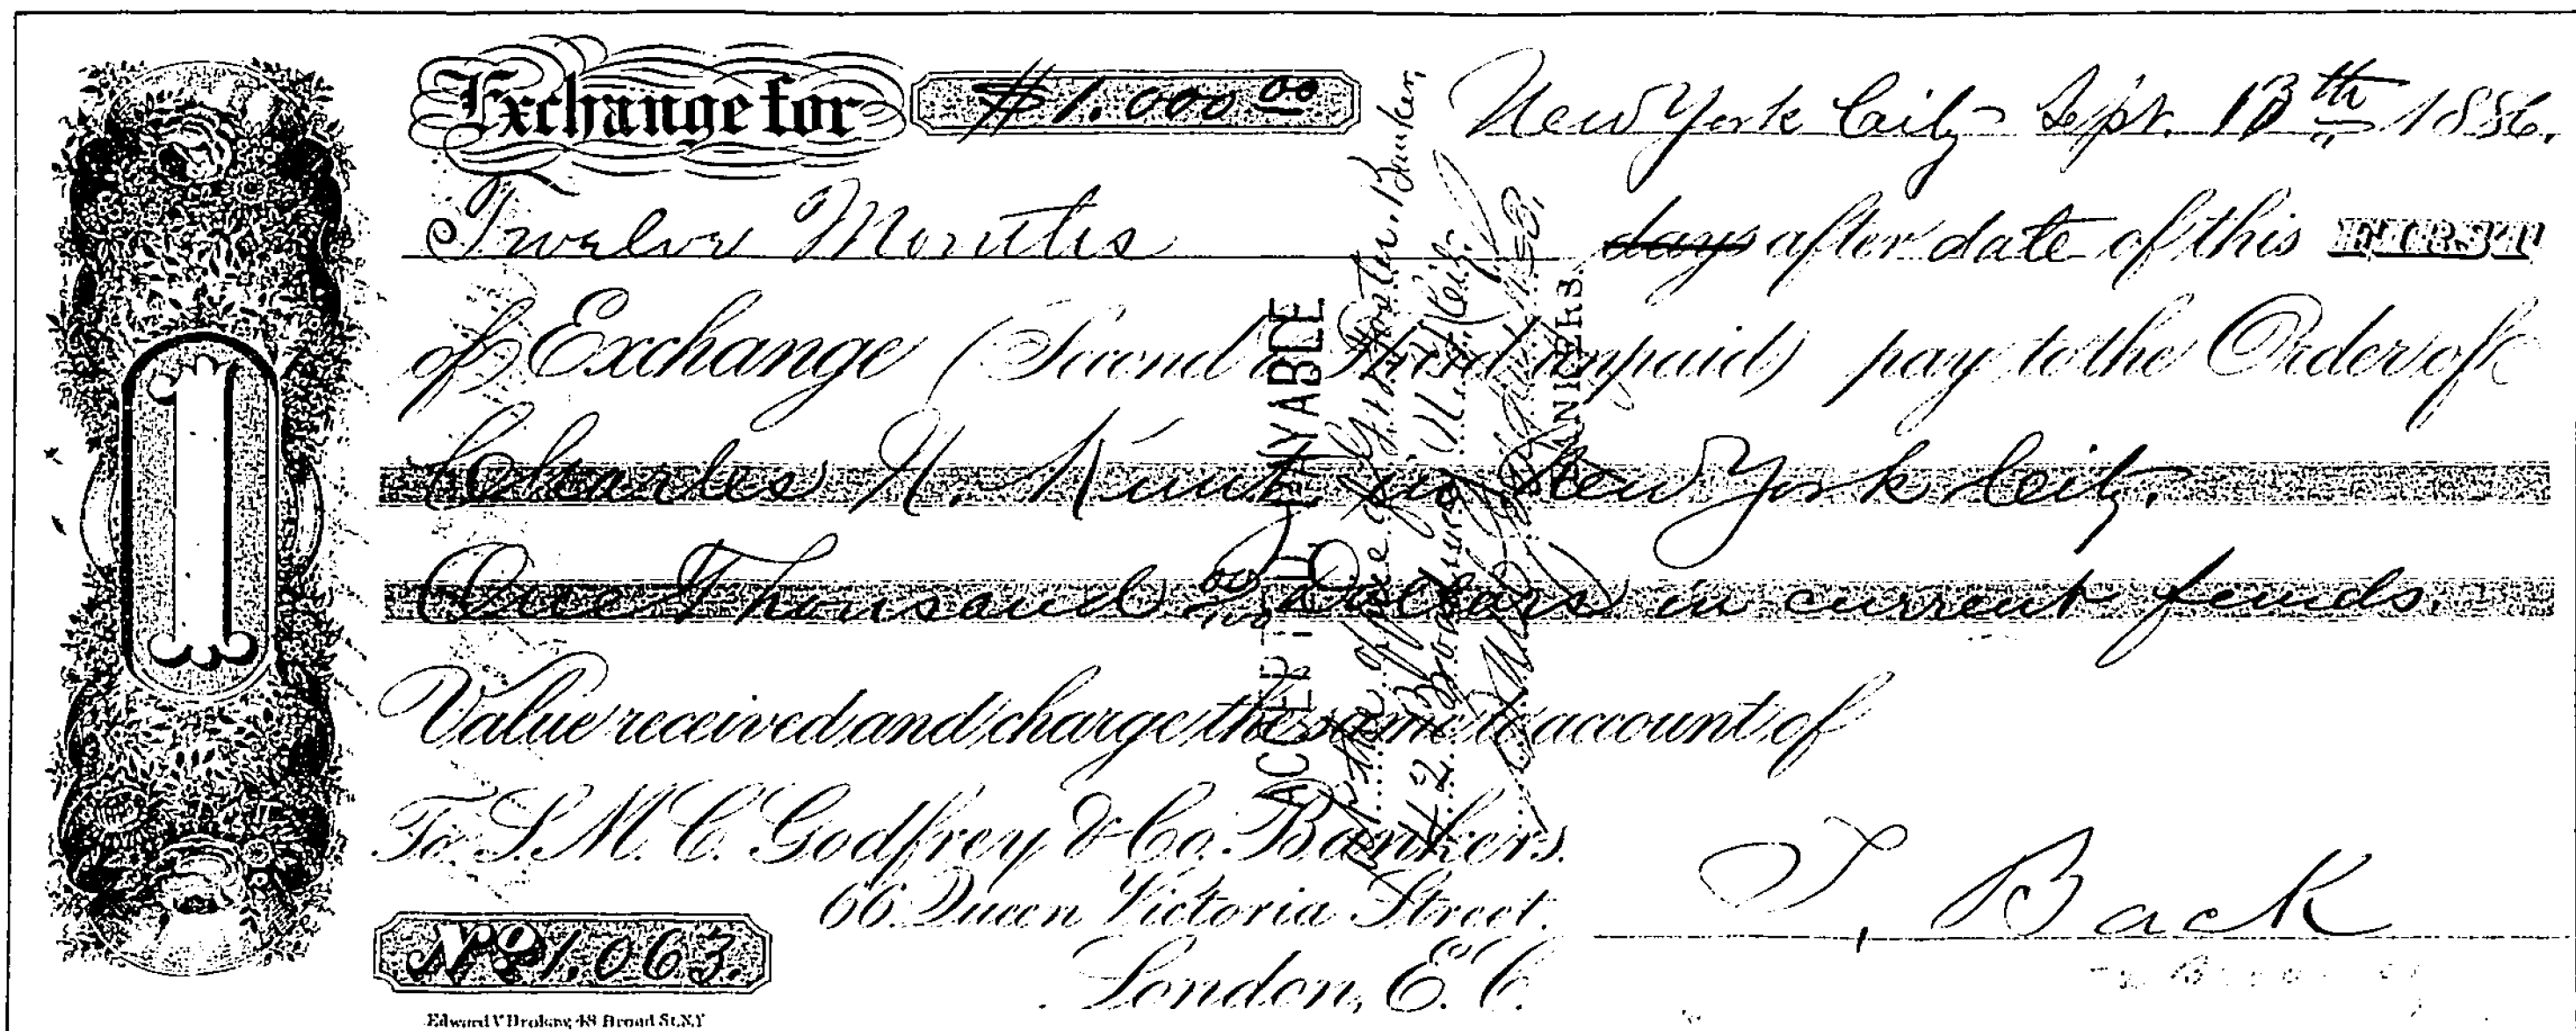 Exchange for $1.000 00 New York City Sept. 13th 1886.
Twelve Months days after date of this FIRST
of Exchange (Second & Third unpaid) pay to the Order of
Charles N. in New York City.
One Thousand 00/100 Dollars in current funds.
Value received and charge the same to account of
To S. M. C. Godfrey & Co. Bankers.
66 Queen Victoria Street.
London, E. C.
T. Back
No 1.063.
Edward V Brokaw, 48 Broad St. N.Y
ACCEPTED PAYABLE
at the office of Banker,
42 Broadway N. Y. City.
BANKERS.